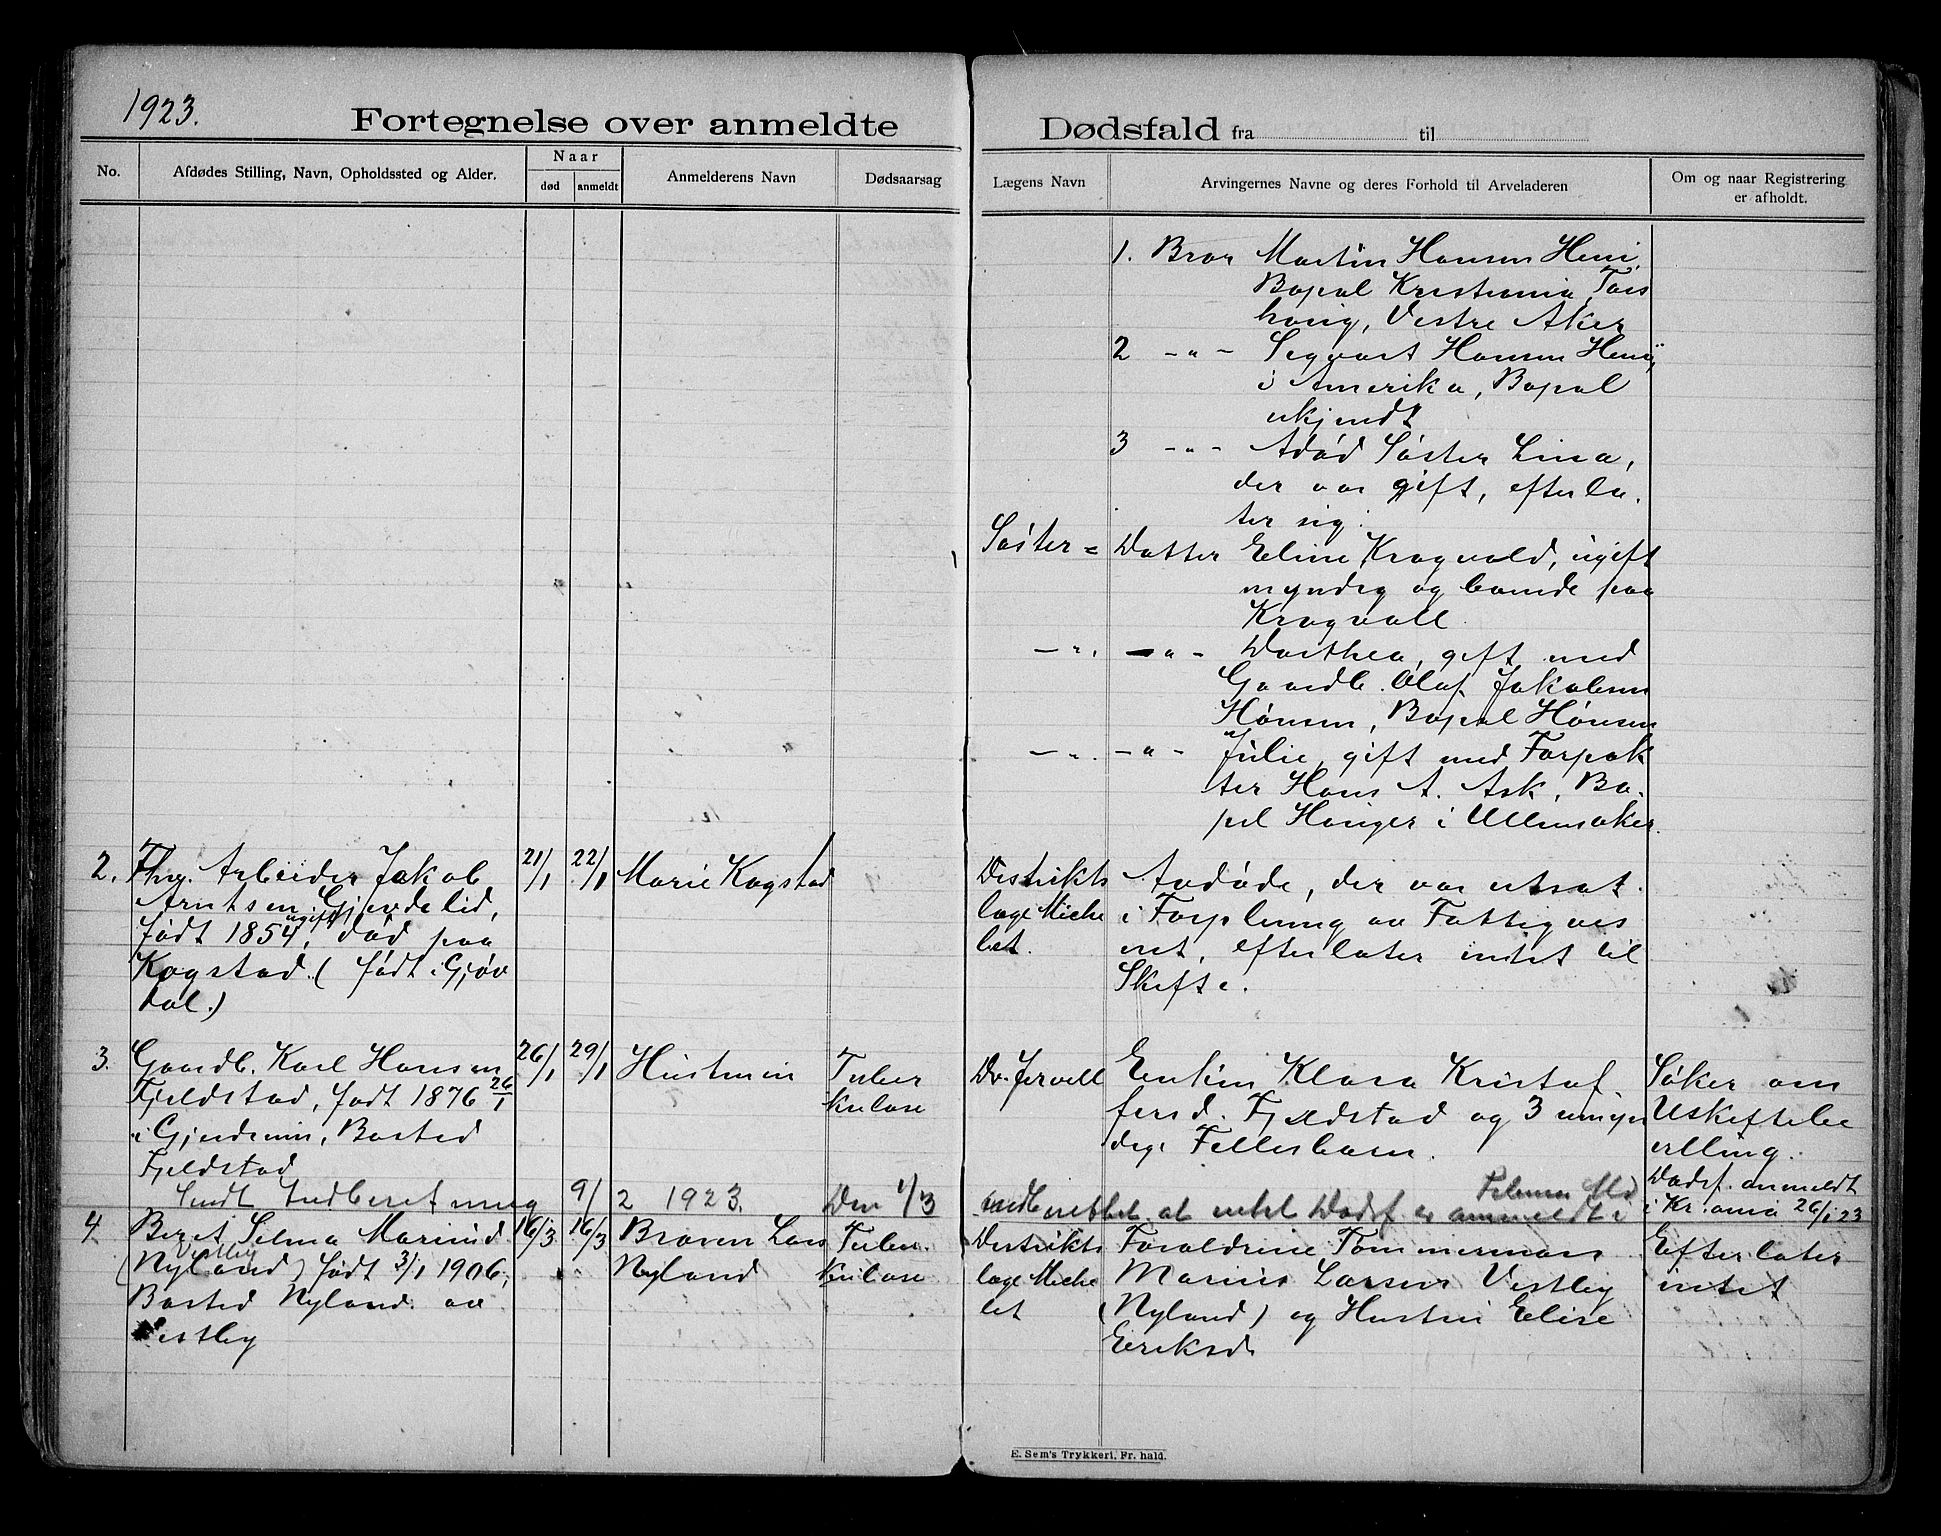 1923.
Fortegnelse over anmeldte
Dødsfald fra til
No.
Afdødes Stilling, Navn, Opholdssted og Alder.
Naar
død
anmeldt
Anmelderens Navn
Dødsaarsag
Lægens Navn
Arvingernes Navne og deres Forhold til Arveladeren
Om og naar Registrering
er afholdt.
1. Bror Martin Hansen Heni,
Bopæl Kristiania, Tors
houg, Vestre Aker
2 -"- Segvart Hansen Heni,
i Amerika, Bopæl
ukjendt
3 -"- Adød Søster Lina,
der var gift, efterla.
ter sig:
Søster = Datter Eline Kragvold, ugift
myndig og boende paa
Kragvall
-"- -"- Dorthea, gift med
Gaardb. Olaf Jakobsen
Hønsen, Bopæl Hønsen
-"- -"- Julie, gift med Forpak
ter Hans A. Ask, Bo.
pæl Hønger i Ullensaker.
2. Fhv. Arbeider Jakob
Arntsen Gjevdelid,
født 1854, ugift, død paa
Kogstad. (født i Gjøv
dal.)
21/1
22/1
Marie Kogstad
Distrikts
læge Miche
let.
Avdøde, der var utsat
i Forpleining av Fattigves
net, efterlater intet til
Skifte.
3. Gaardb. Karl Hansen
Fjeldstad, født 1876 26/1
i Gjerdrum, Bosted
Fjeldstad
26/1
29/1
Hustruen
Tuber
kulose
Dr. Jervell
Enken Klara Kristof
fersd. Fjeldstad og 3 umyn
dige Fellesbarn.
Søker om
Uskiftebe
villing.
Dødsf. anmeldt
i Kr.ania 26/1 23
Sendt Indberetning 9/2 1923. Den 1/3
indberettet at intet Dødsf er anmeldt i
4. Beret Selma Marieid
Vestby
(Nyland) født 3/1 1906,
Bosted Nyland av
Vestby
16/3
16/3
Broren Lars
Nyland
Tuber.
kulose
Distrikts
læge Miche
let
Forældrene Tømmermand
Marius Larsen Vestby
(Nyland) og Hustru Elise
Eriksd.
Efterlater
intet
E. Sem's Trykkeri, Fr. hald.